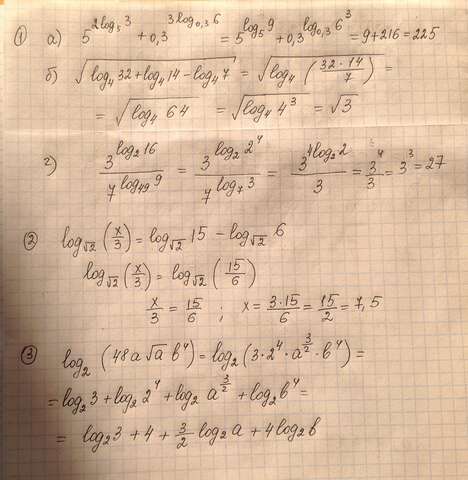 ① а) 5^{2log_5 3} + 0,3^{3log_{0,3} 6} = 5^{log_5 9} + 0,3^{log_{0,3} 6^3} = 9+216 = 225
б) √(log_4 32 + log_4 14 - log_4 7) = √(log_4 (32·14/7)) =
= √(log_4 64) = √(log_4 4^3) = √3
г) 3^{log_2 16}/7^{log_{49} 9} = 3^{log_2 2^4}/7^{log_7 3} = 3^{4log_2 2}/3 = 3^4/3 = 3^3 = 27
② log_{√2} (x/3) = log_{√2} 15 - log_{√2} 6
log_{√2} (x/3) = log_{√2} (15/6)
x/3 = 15/6 ; x = 3·15/6 = 15/2 = 7,5
③ log_2 (48a√a b^4) = log_2 (3·2^4·a^{3/2}·b^4) =
= log_2 3 + log_2 2^4 + log_2 a^{3/2} + log_2 b^4 =
= log_2 3 + 4 + 3/2 log_2 a + 4log_2 b